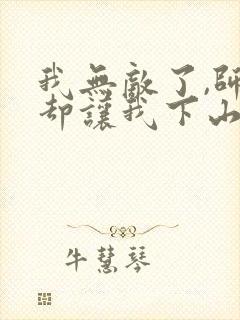 我無敵了,師
却讓我下山
牛慧琴